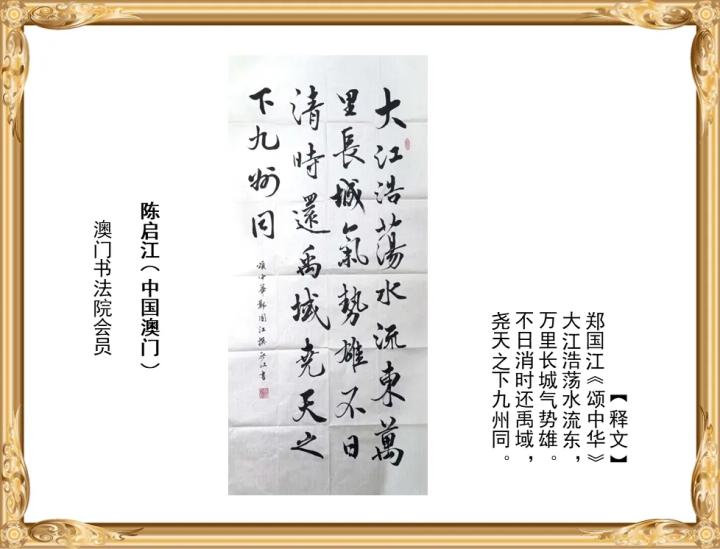 【释文】
郑国江《颂中华》
大江浩荡水流东，
万里长城气势雄。
不日消时还禹域，
尧天之下九州同。
大江浩蕩水流東萬
里長城氣勢雄不日
清時還禹域堯天之
下九州同
頌中華鄭國江撰啟江書
陈启江（中国澳门）
澳门书法院会员